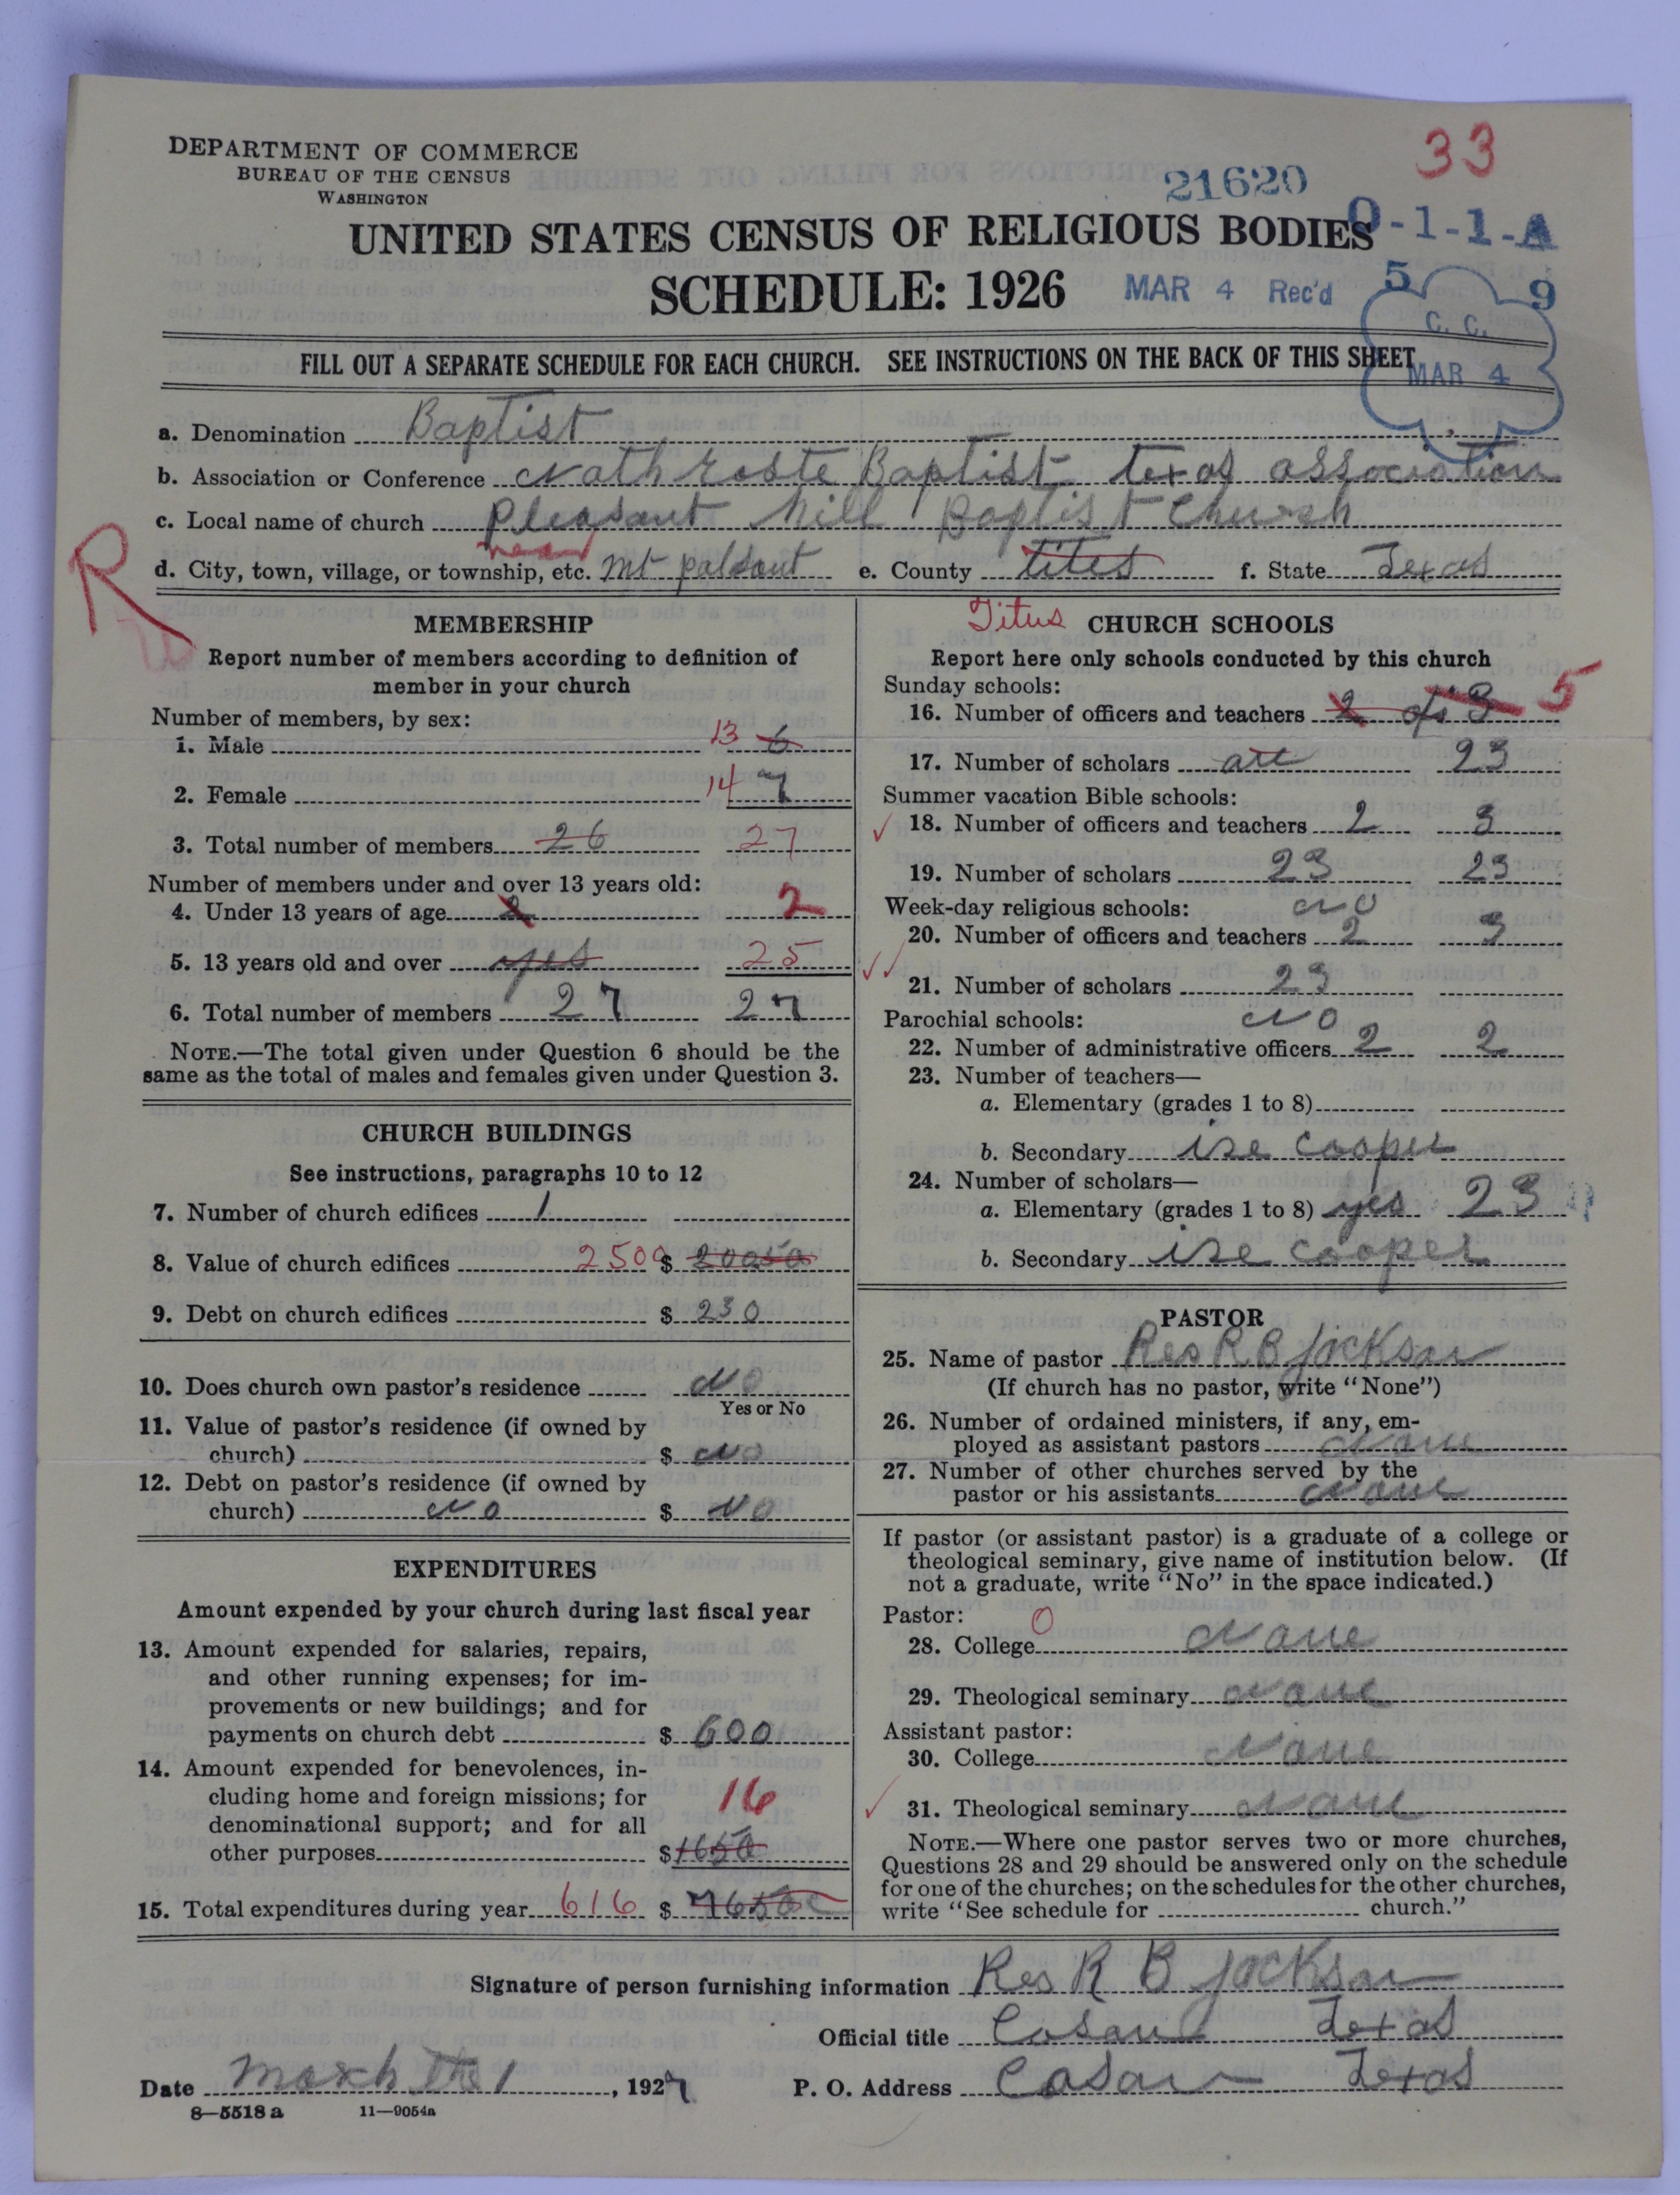 DEPARTMENT OF COMMERCE
BUREAU OF THE CENSUS
WASHINGTON
33
21620
0-1-1-A
UNITED STATES CENSUS OF RELIGIOUS BODIES
SCHEDULE: 1926
MAR 4 Rec'd
5 9
C. C.
MAR 4
FILL OUT A SEPARATE SCHEDULE FOR EACH CHURCH. SEE INSTRUCTIONS ON THE BACK OF THIS SHEET
a. Denomination Baptist
b. Association or Conference Baptist texas association
c. Local name of church Pleasant hill Baptist Church
near
d. City, town, village, or township, etc. mt palsant e. County tites f. State Texas
R
Titus
MEMBERSHIP
Report number of members according to definition of
member in your church
Number of members, by sex:
1. Male 13 6
2. Female 14 7
3. Total number of members 26 27
Number of members under and over 13 years old:
4. Under 13 years of age 2 2
5. 13 years old and over yes 25
6. Total number of members 27 27
NOTE.—The total given under Question 6 should be the
same as the total of males and females given under Question 3.
CHURCH BUILDINGS
See instructions, paragraphs 10 to 12
7. Number of church edifices 1
8. Value of church edifices 2500 $ 20050
9. Debt on church edifices $ 230
10. Does church own pastor's residence No
Yes or No
11. Value of pastor's residence (if owned by
church) $ No
12. Debt on pastor's residence (if owned by
church) No $ No
EXPENDITURES
Amount expended by your church during last fiscal year
13. Amount expended for salaries, repairs,
and other running expenses; for im-
provements or new buildings; and for
payments on church debt $ 600
14. Amount expended for benevolences, in-
cluding home and foreign missions; for
denominational support; and for all
16
other purposes $ 1650
15. Total expenditures during year 616 $
CHURCH SCHOOLS
Report here only schools conducted by this church
Sunday schools:
16. Number of officers and teachers 2 of 3 5
17. Number of scholars all 23
Summer vacation Bible schools:
✓ 18. Number of officers and teachers 2 3
19. Number of scholars 23 23
Week-day religious schools: No
20. Number of officers and teachers 2 3
✓✓
21. Number of scholars 23
Parochial schools: No
22. Number of administrative officers 2 2
23. Number of teachers—
a. Elementary (grades 1 to 8)
b. Secondary ise cooper
24. Number of scholars—
a. Elementary (grades 1 to 8) yes 23
b. Secondary ise cooper
PASTOR
25. Name of pastor Res R B Jackson
(If church has no pastor, write "None")
26. Number of ordained ministers, if any, em-
ployed as assistant pastors None
27. Number of other churches served by the
pastor or his assistants None
If pastor (or assistant pastor) is a graduate of a college or
theological seminary, give name of institution below. (If
not a graduate, write "No" in the space indicated.)
Pastor: 0
28. College None
29. Theological seminary None
Assistant pastor:
30. College None
✓ 31. Theological seminary None
NOTE.—Where one pastor serves two or more churches,
Questions 28 and 29 should be answered only on the schedule
for one of the churches; on the schedules for the other churches,
write "See schedule for church."
Signature of person furnishing information Res R B Jackson
Official title Texas
Date March the 1, 1927 P. O. Address Texas
8—5518 a 11—9054a